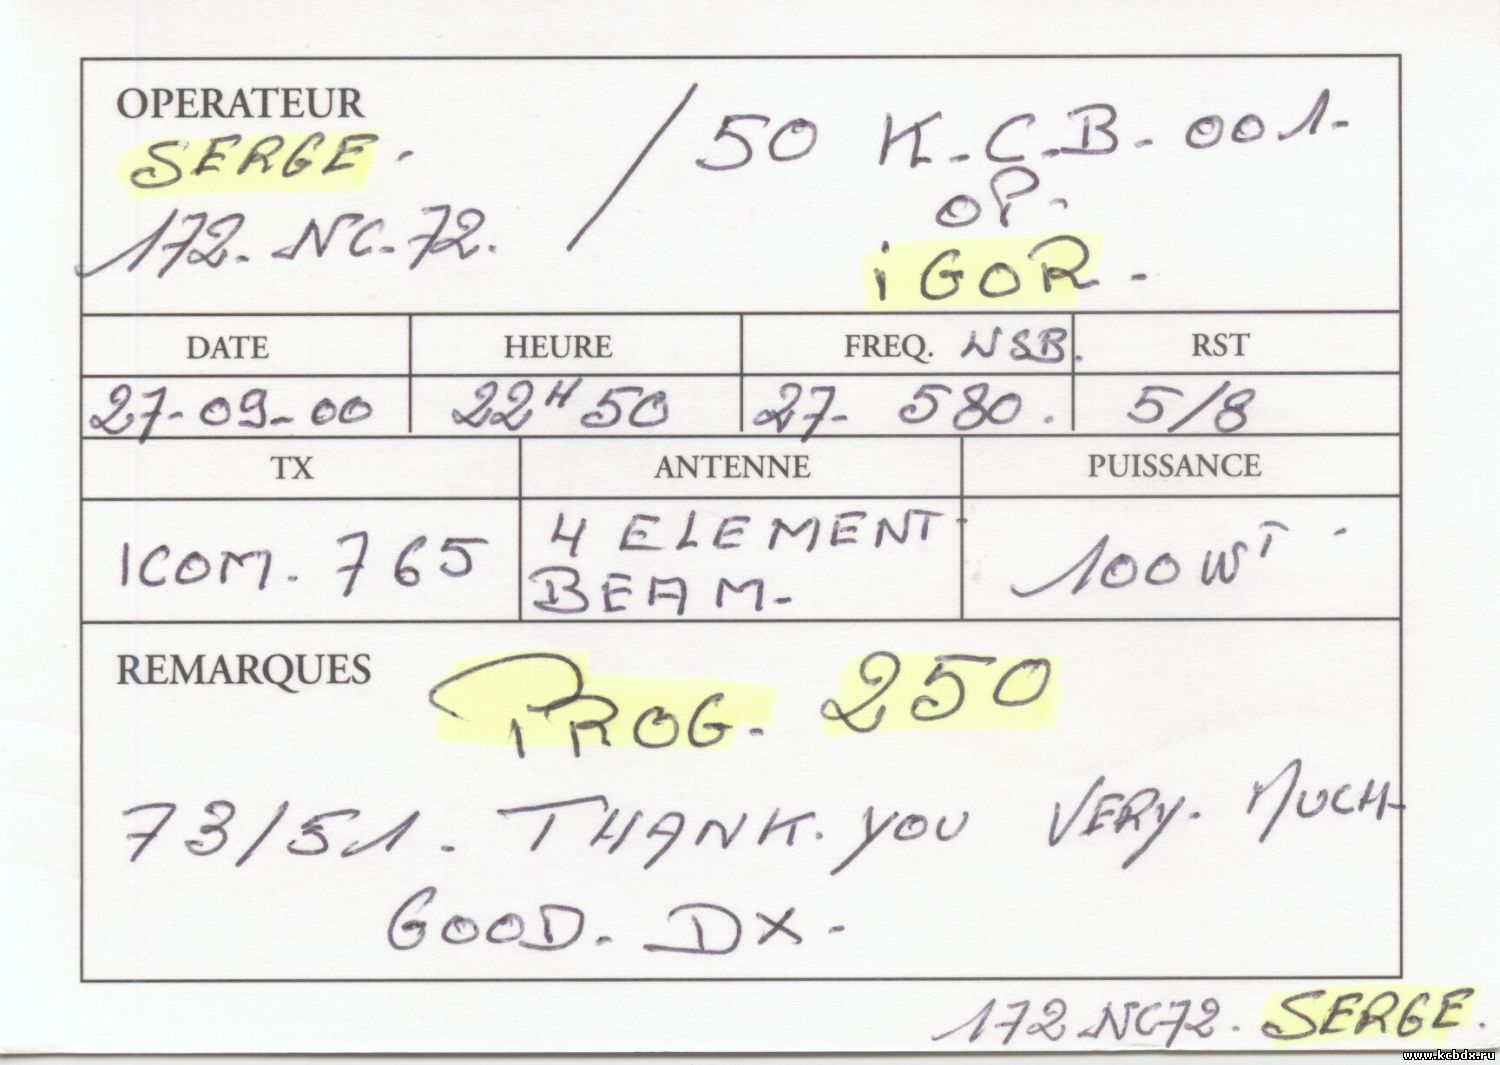 OPERATEUR
SERGE.
172. NC. 72.
/ 50 K.C.B. 001.
OP.
iGOR.
DATE HEURE FREQ. USB. RST
27-09-00 22H50 27- 580. 5/8
TX ANTENNE PUISSANCE
ICOM. 765 4 ELEMENT BEAM. 100WT
REMARQUES
PROG. 250
73/51. THANK. YOU VERY. MUCH
GOOD. DX.
172 NC72. SERGE.
www.kcbdx.ru